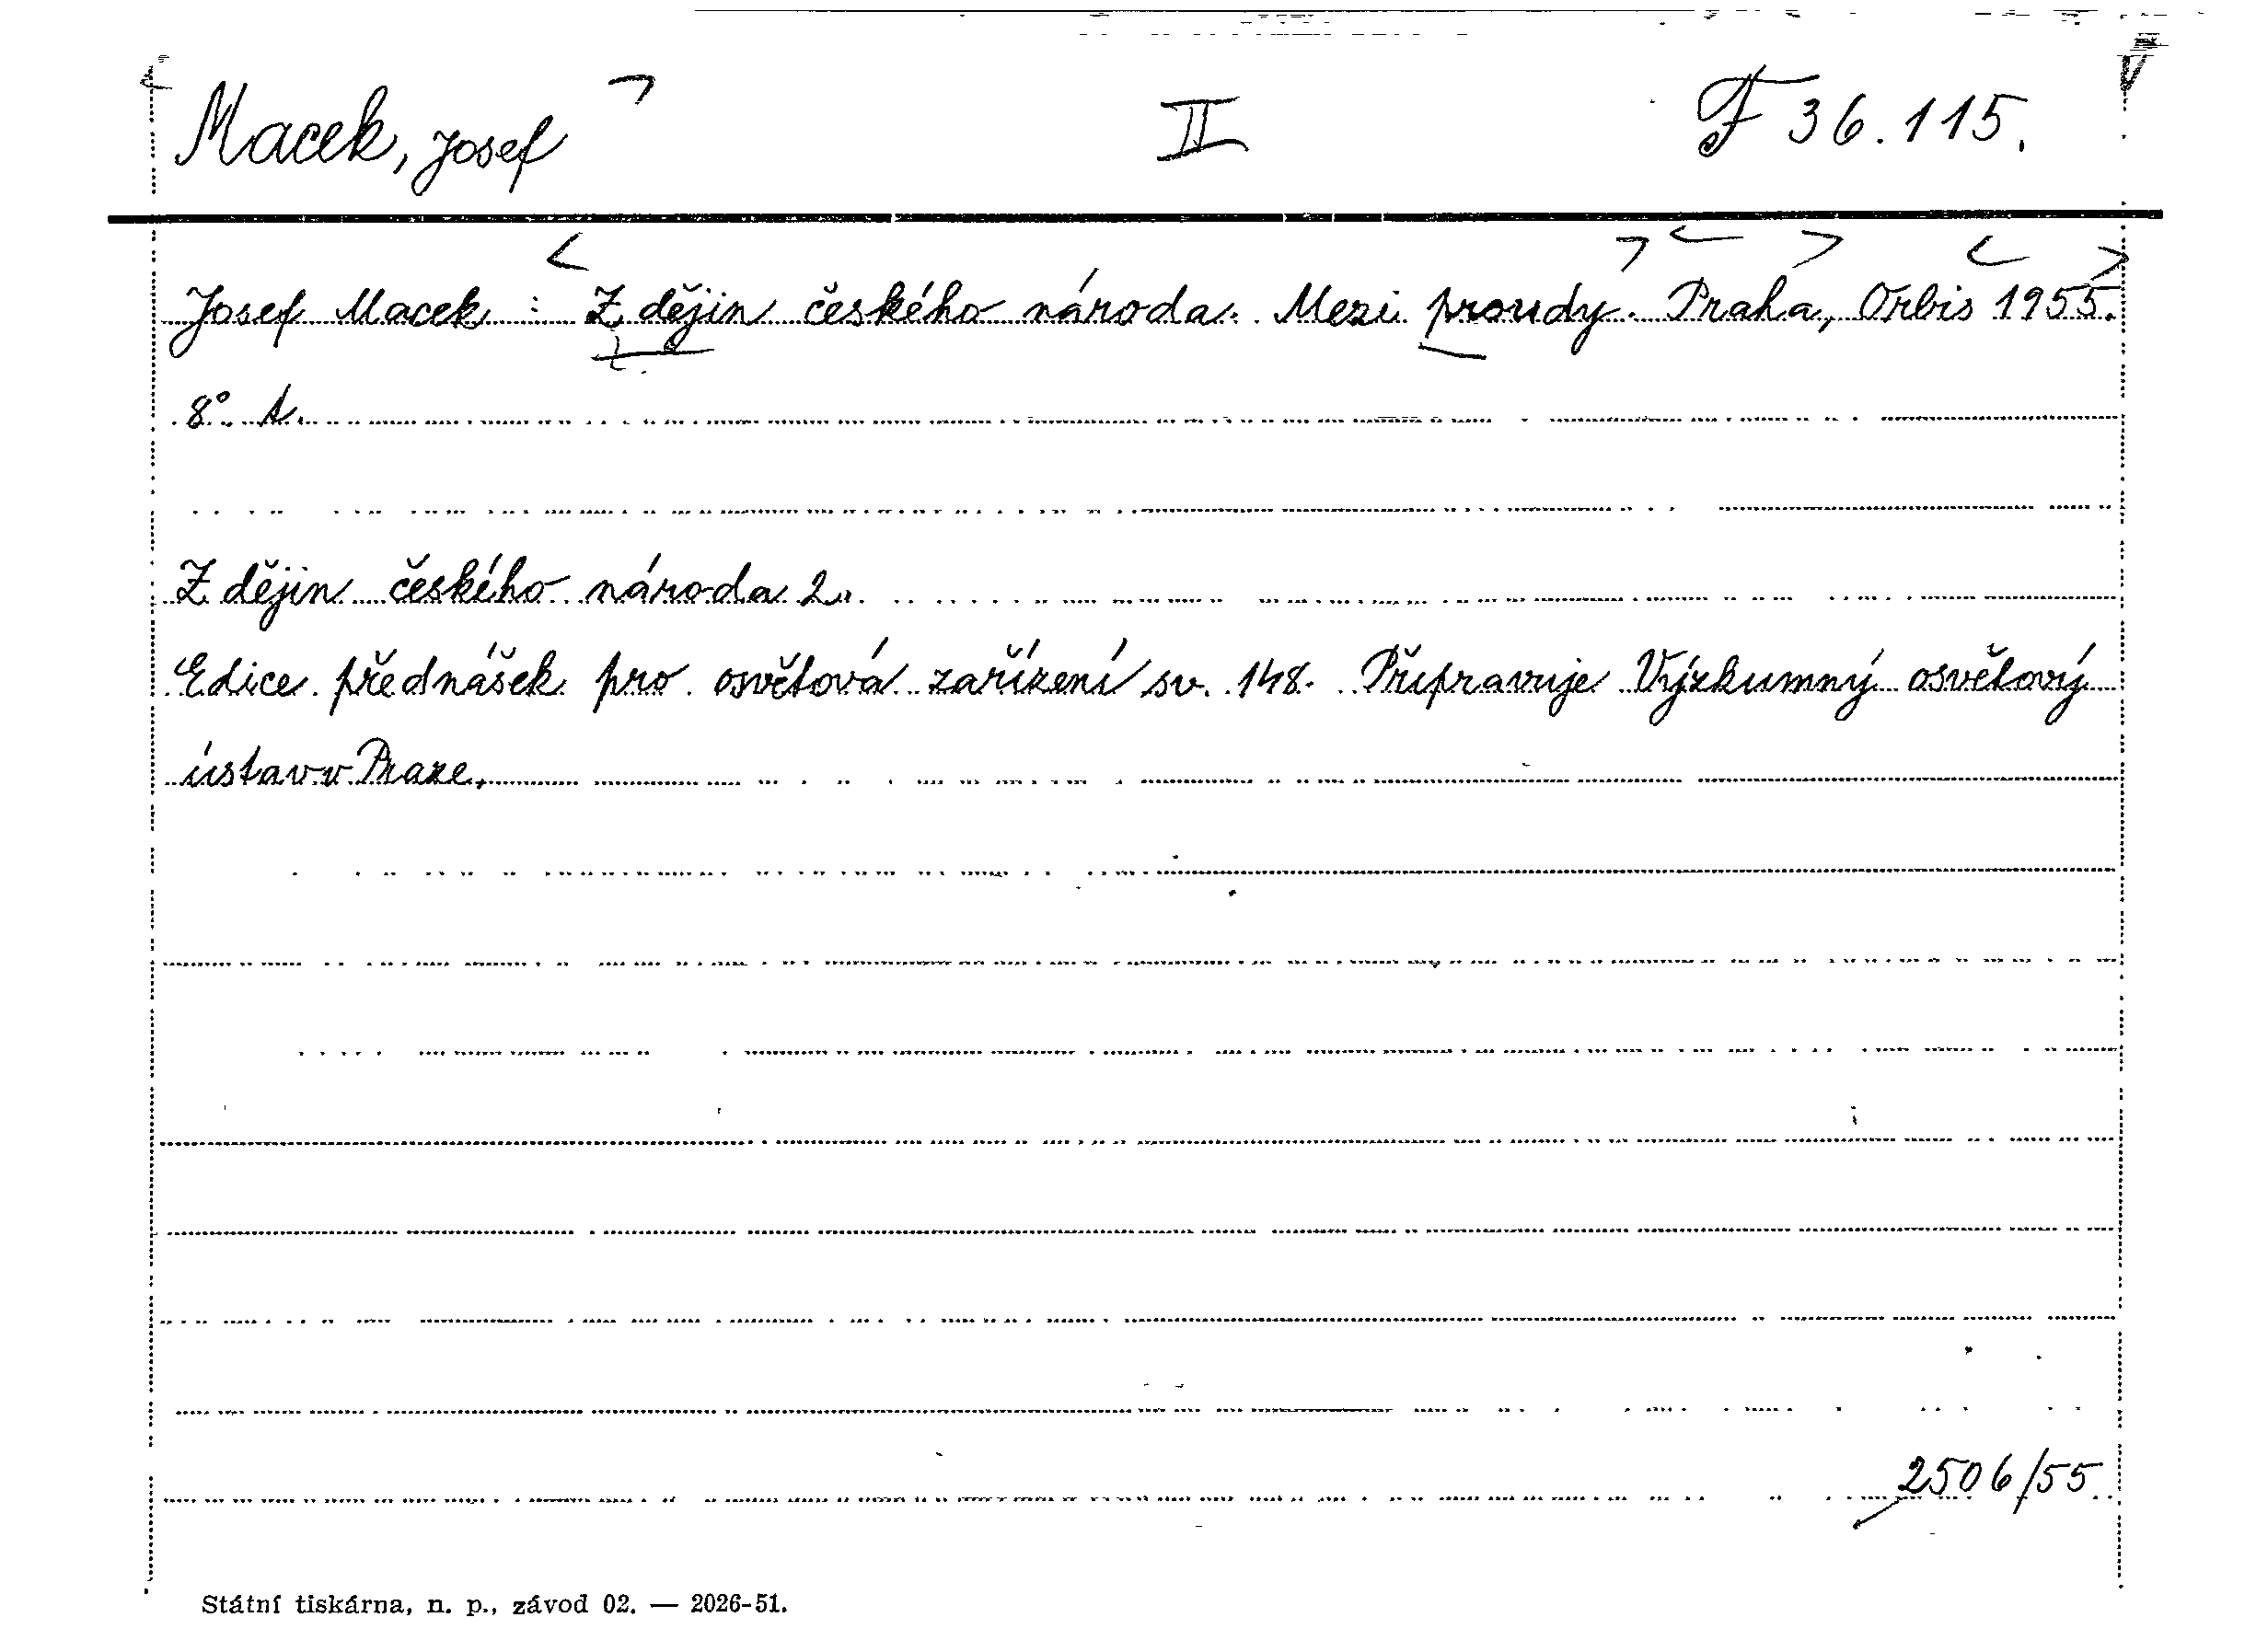 Macek, Josef II F 36.115.
Josef Macek : Z dějin českého národa. Mezi proudy. Praha, Orbis 1955.
8°. A.
Z dějin českého národa 2.
Edice přednášek pro osvětová zařízení sv. 148. Připravuje Výzkumný osvětový
ústav v Praze.
2506/55
Státní tiskárna, n. p., závod 02. — 2026-51.